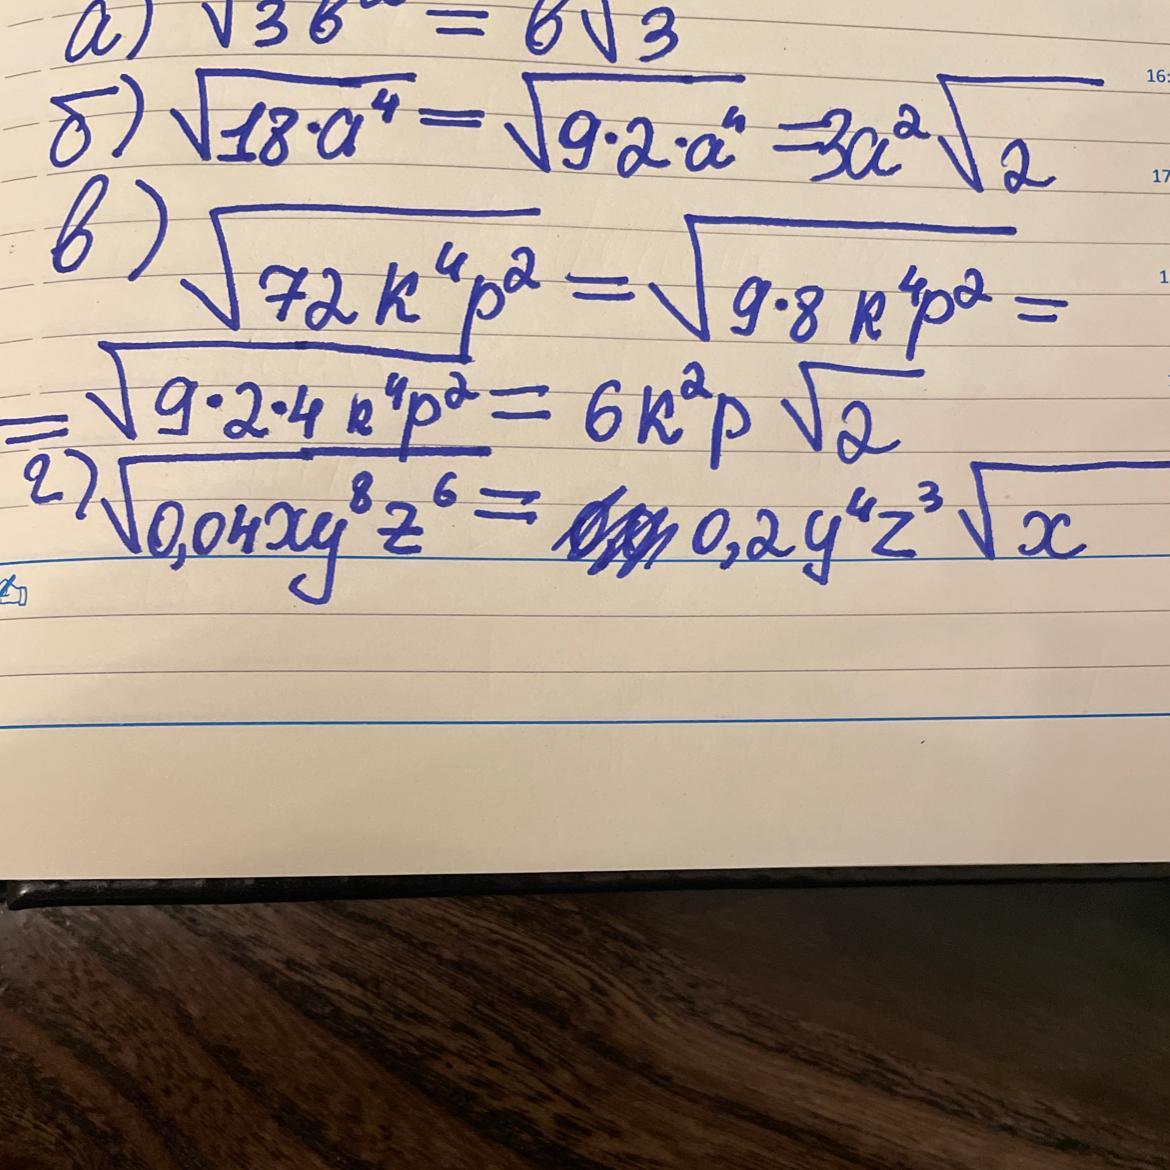 а) √3b² = b√3
б) √18·a⁴ = √9·2·a⁴ = 3a²√2
16:
17
в) √72k⁴p² = √9·8k⁴p² =
1
= √9·2·4k⁴p² = 6k²p√2
г) √0,04xy⁸z⁶ = 0,2y⁴z³√x